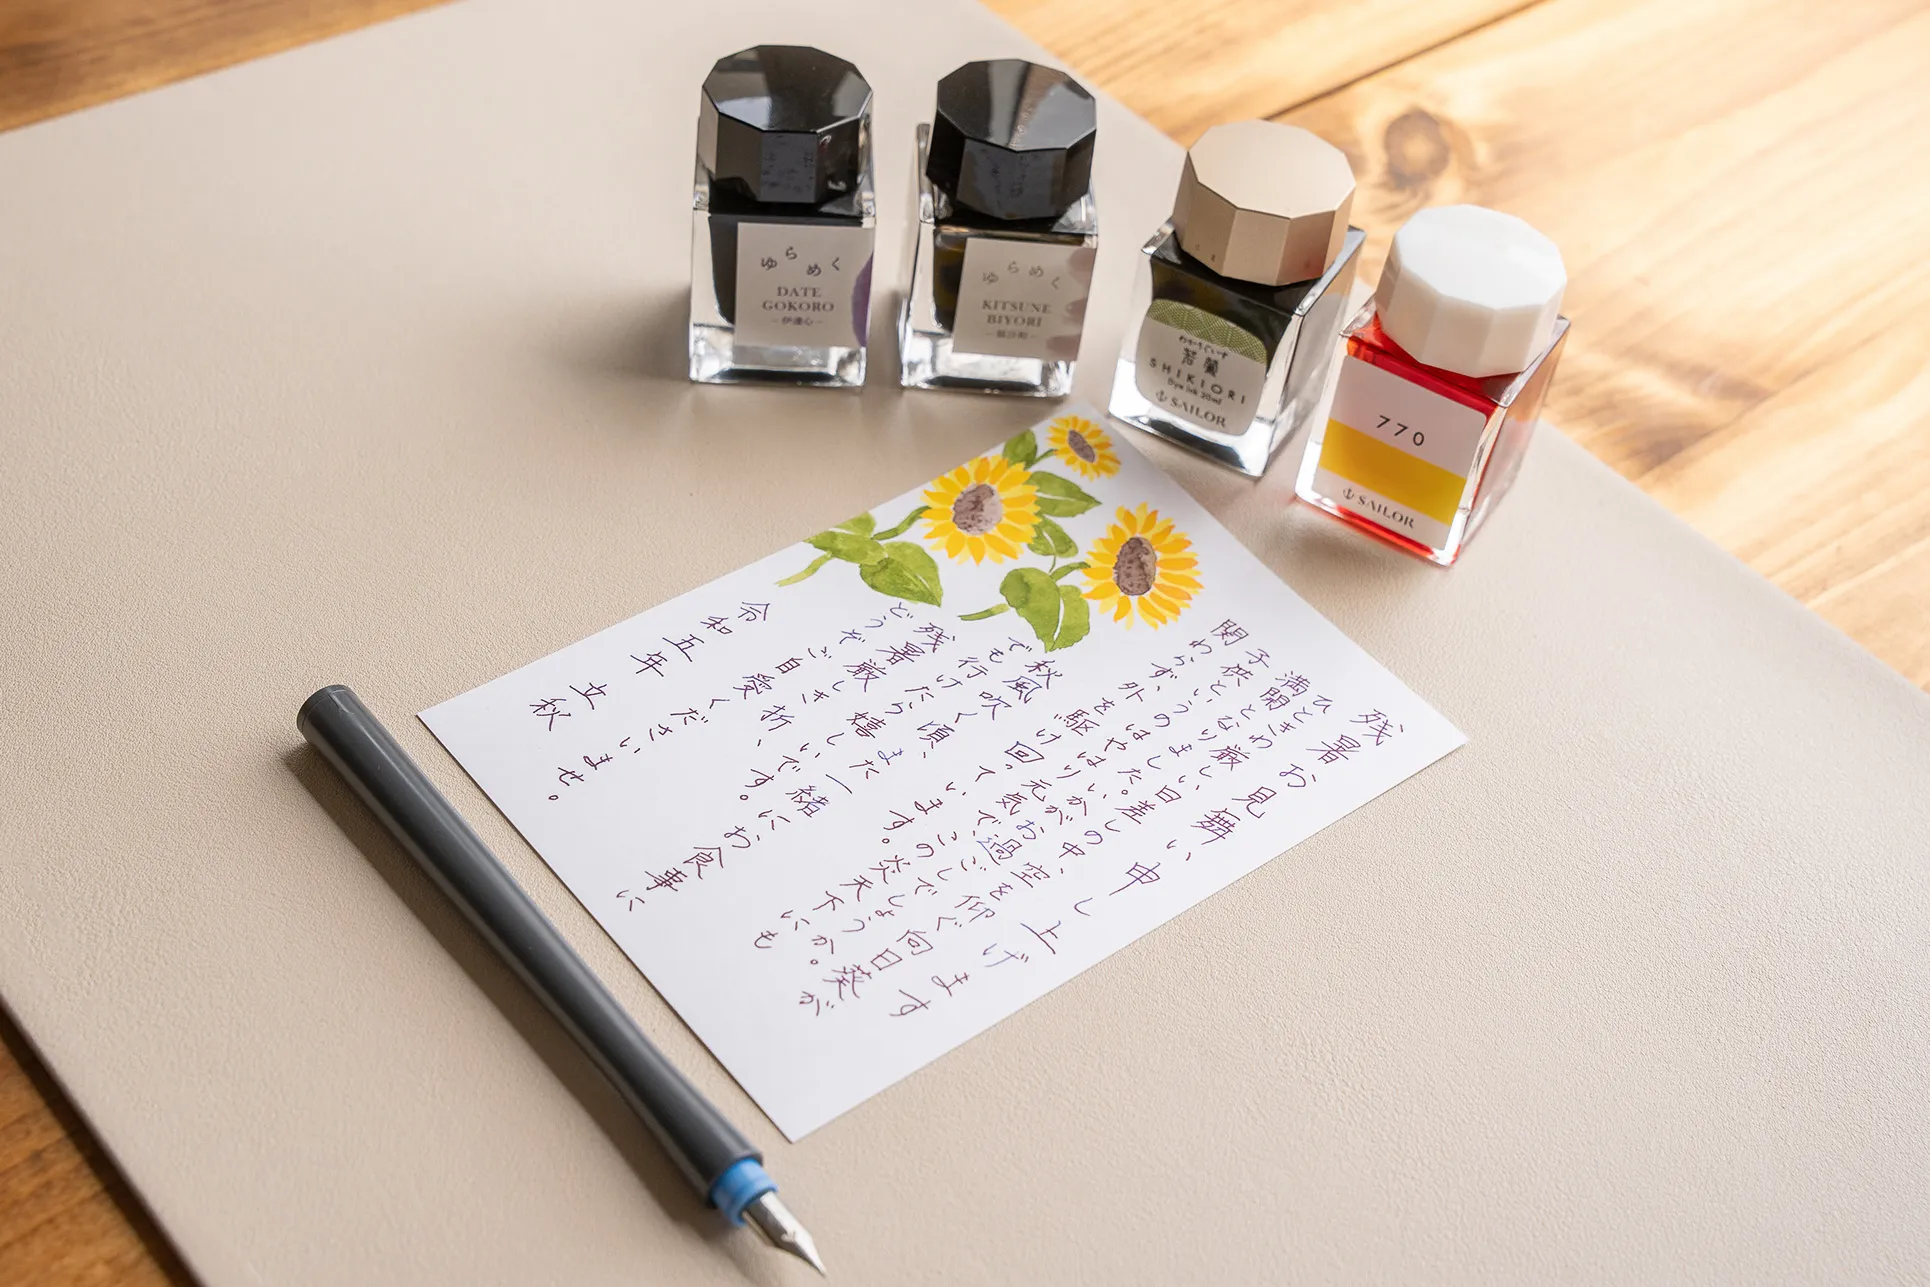 ゆらめく
DATE
GOKORO
－伊達心－
ゆらめく
KITSUNE
BIYORI
わかうぐいす
若鶯
SHIKIORI
Dye ink 20ml
SAILOR
770
SAILOR
残暑お見舞い申し上げます
ひときわ厳しい日差しの中、空を仰ぐ向日葵が
満開となりました。いかがお過ごしでしょうか。
子供というのはやはり元気で、この炎天下にも
関わらず、外を駆け回っています。
秋風吹く頃、また一緒にお食事に
でも行けたら嬉しいです。
残暑厳しき折、
どうぞご自愛くださいませ。
令和五年 立秋